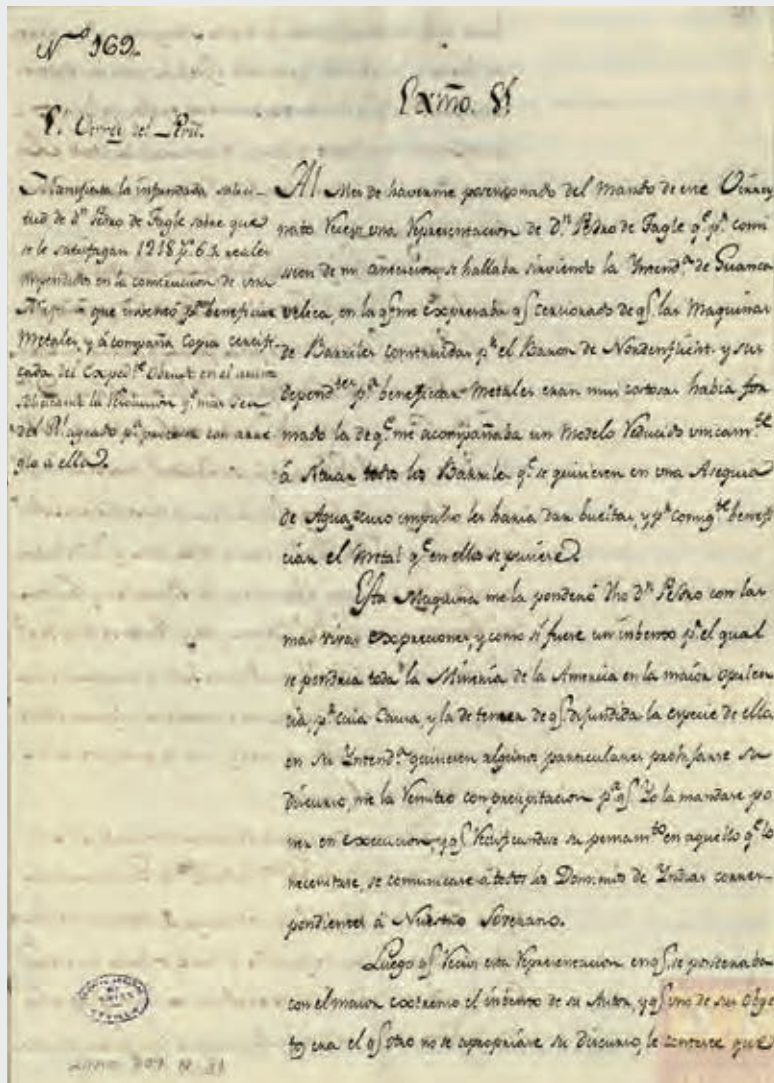 N.º 169.
Exmo. Sr.
El Virrey del Perú.
Manifiesta la infundada solici-
tud de dn. Pedro de Tagle sobre que
se le satisfagan 1218 ps. 6 rs. reales
impendidos en la construccion de una
Maquina que inventó pa. beneficiar
Metales, y acompaña Copia certifi-
cada del Exped.te obrado en el
solicitando la Resolucion qe. mas sea
del Rl. agrado pa. proceder con arre-
glo a ella.
Al Mes de haverme posesionado del Mando de este Virrey
nato Recivi una Representacion de Dn. Pedro de Tagle qe. pr. comi
sion de mi antecesor, se hallaba sirviendo la Yntend.a de Guanca
velica, en la qe. me expresaba qe. cercionado de qe. las Maquinas
de Barriles construidas pr. el Baron de Nordenflicht y sus
depend.tes pa. beneficiar Metales eran mui costosas habia for
mado la de qe. me acompañaba un Modelo Reducido unicam.te
á situar todos los Barriles qe. se quisieren en una Asequia
de Agua, cuio impulso les haria dar bueltas, y pr. consig.te benefi
ciar el Metal qe. en ellos se pusiere.
Esta Maquina me la ponderó dho dn. Pedro con las
mas vivas expreciones, y como si fuere un inbento pr. el qual
se pondria toda la Mineria de la America en la maior opulen
cia, pr. cuia Causa, y la de temer de qe. difundida la especie de ella
en su Yntend.a quisiesen algunos particulares prohijarse su
discurso, me la Remitio con precipitacion pa. qe. Yo la mandase po
ner en execucion, y qe. Rectificandose su pensam.to en aquello qe. lo
necesitase, se comunicase á todos los Dominios de Yndias corres-
pondientes á Nuestro Soverano.
Luego qe. Recivi esta Representacion en qe. se ponderaba
con el maior extremo el inbento de su Autor, y qe. uno de sus obge
tos era el qe. otro no se apropiáse su Discurso, le contexte que
SEVILLA
LIMA 709, N. 31